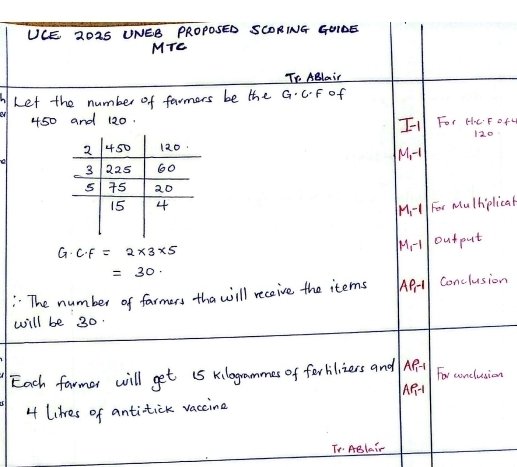 UCE 2025 UNEB PROPOSED SCORING GUIDE
MTC
Tr. ABlair
Let the number of farmers be the G.C.F of
450 and 120.
I-1 For H.C.F of
120.
2 | 450 | 120.
M1-1
3 | 225 | 60
5 | 75 | 20
15 | 4
M1-1 For Multiplicat
G.C.F = 2x3x5
M1-1 output
= 30.
∴ The number of farmers tha will receive the items
will be 30.
AP1-1 Conclusion
Each farmer will get 15 kilogrammes of fertilizers and
4 litres of antitick vaccine
AP1-1
AP1-1
For conclusion
Tr. ABlair